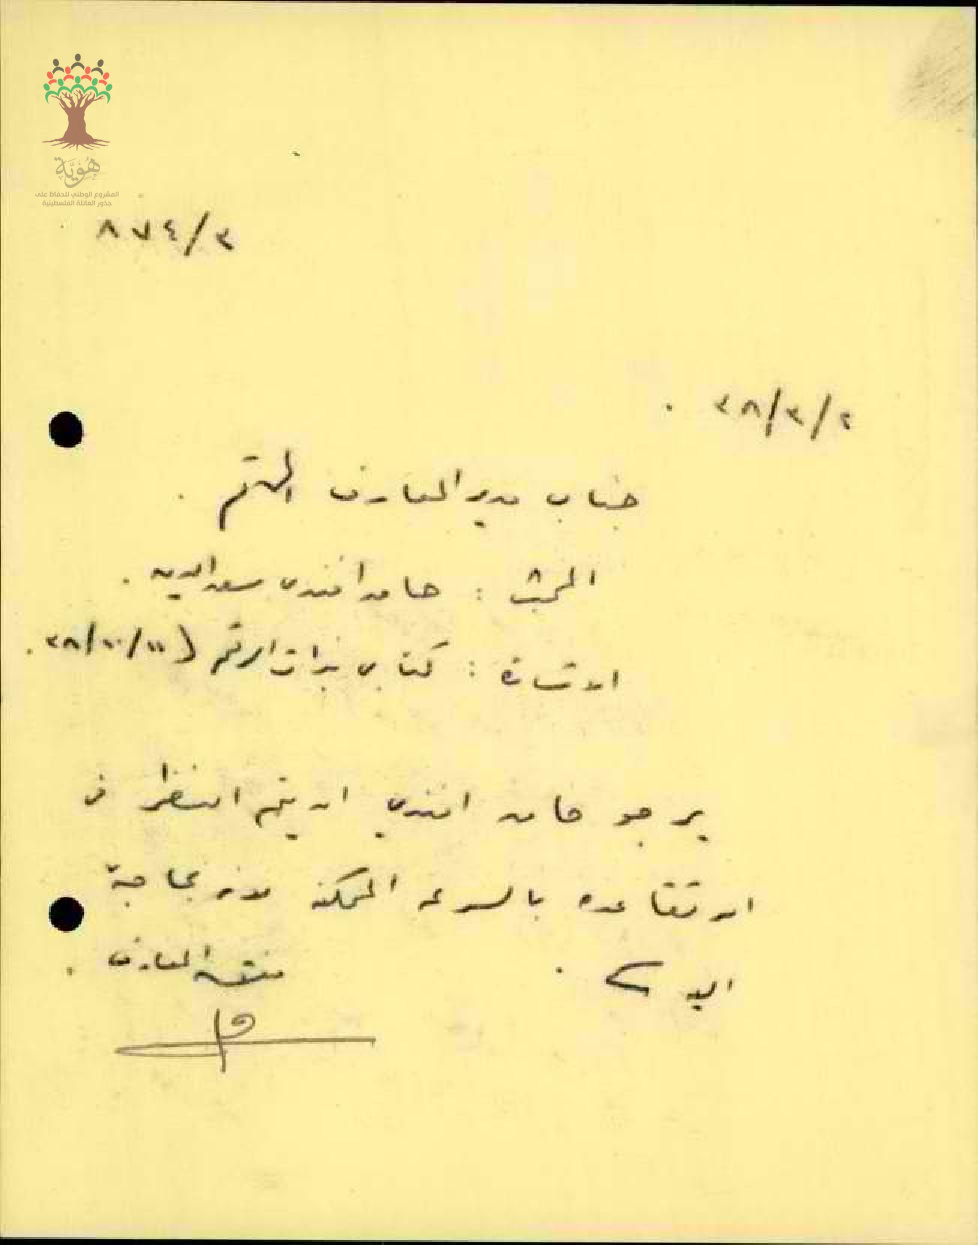 هُوِيَّة
المشروع الوطني للحفاظ على
جذور العائلة الفلسطينية
٨٧٤/٣
٣٨/٣/٢ .
جناب مدير المعارف المحترم .
المبحث : حامد افندي سعد الدين .
الاشارة : كتابي بذات الرقم ٣٨/١٠/١١ .
يرجو حامد افندي ان يتم النظر في
امر تقاعده بالسرعة الممكنة لانه بحاجة
اليه .
مفتش المعارف .